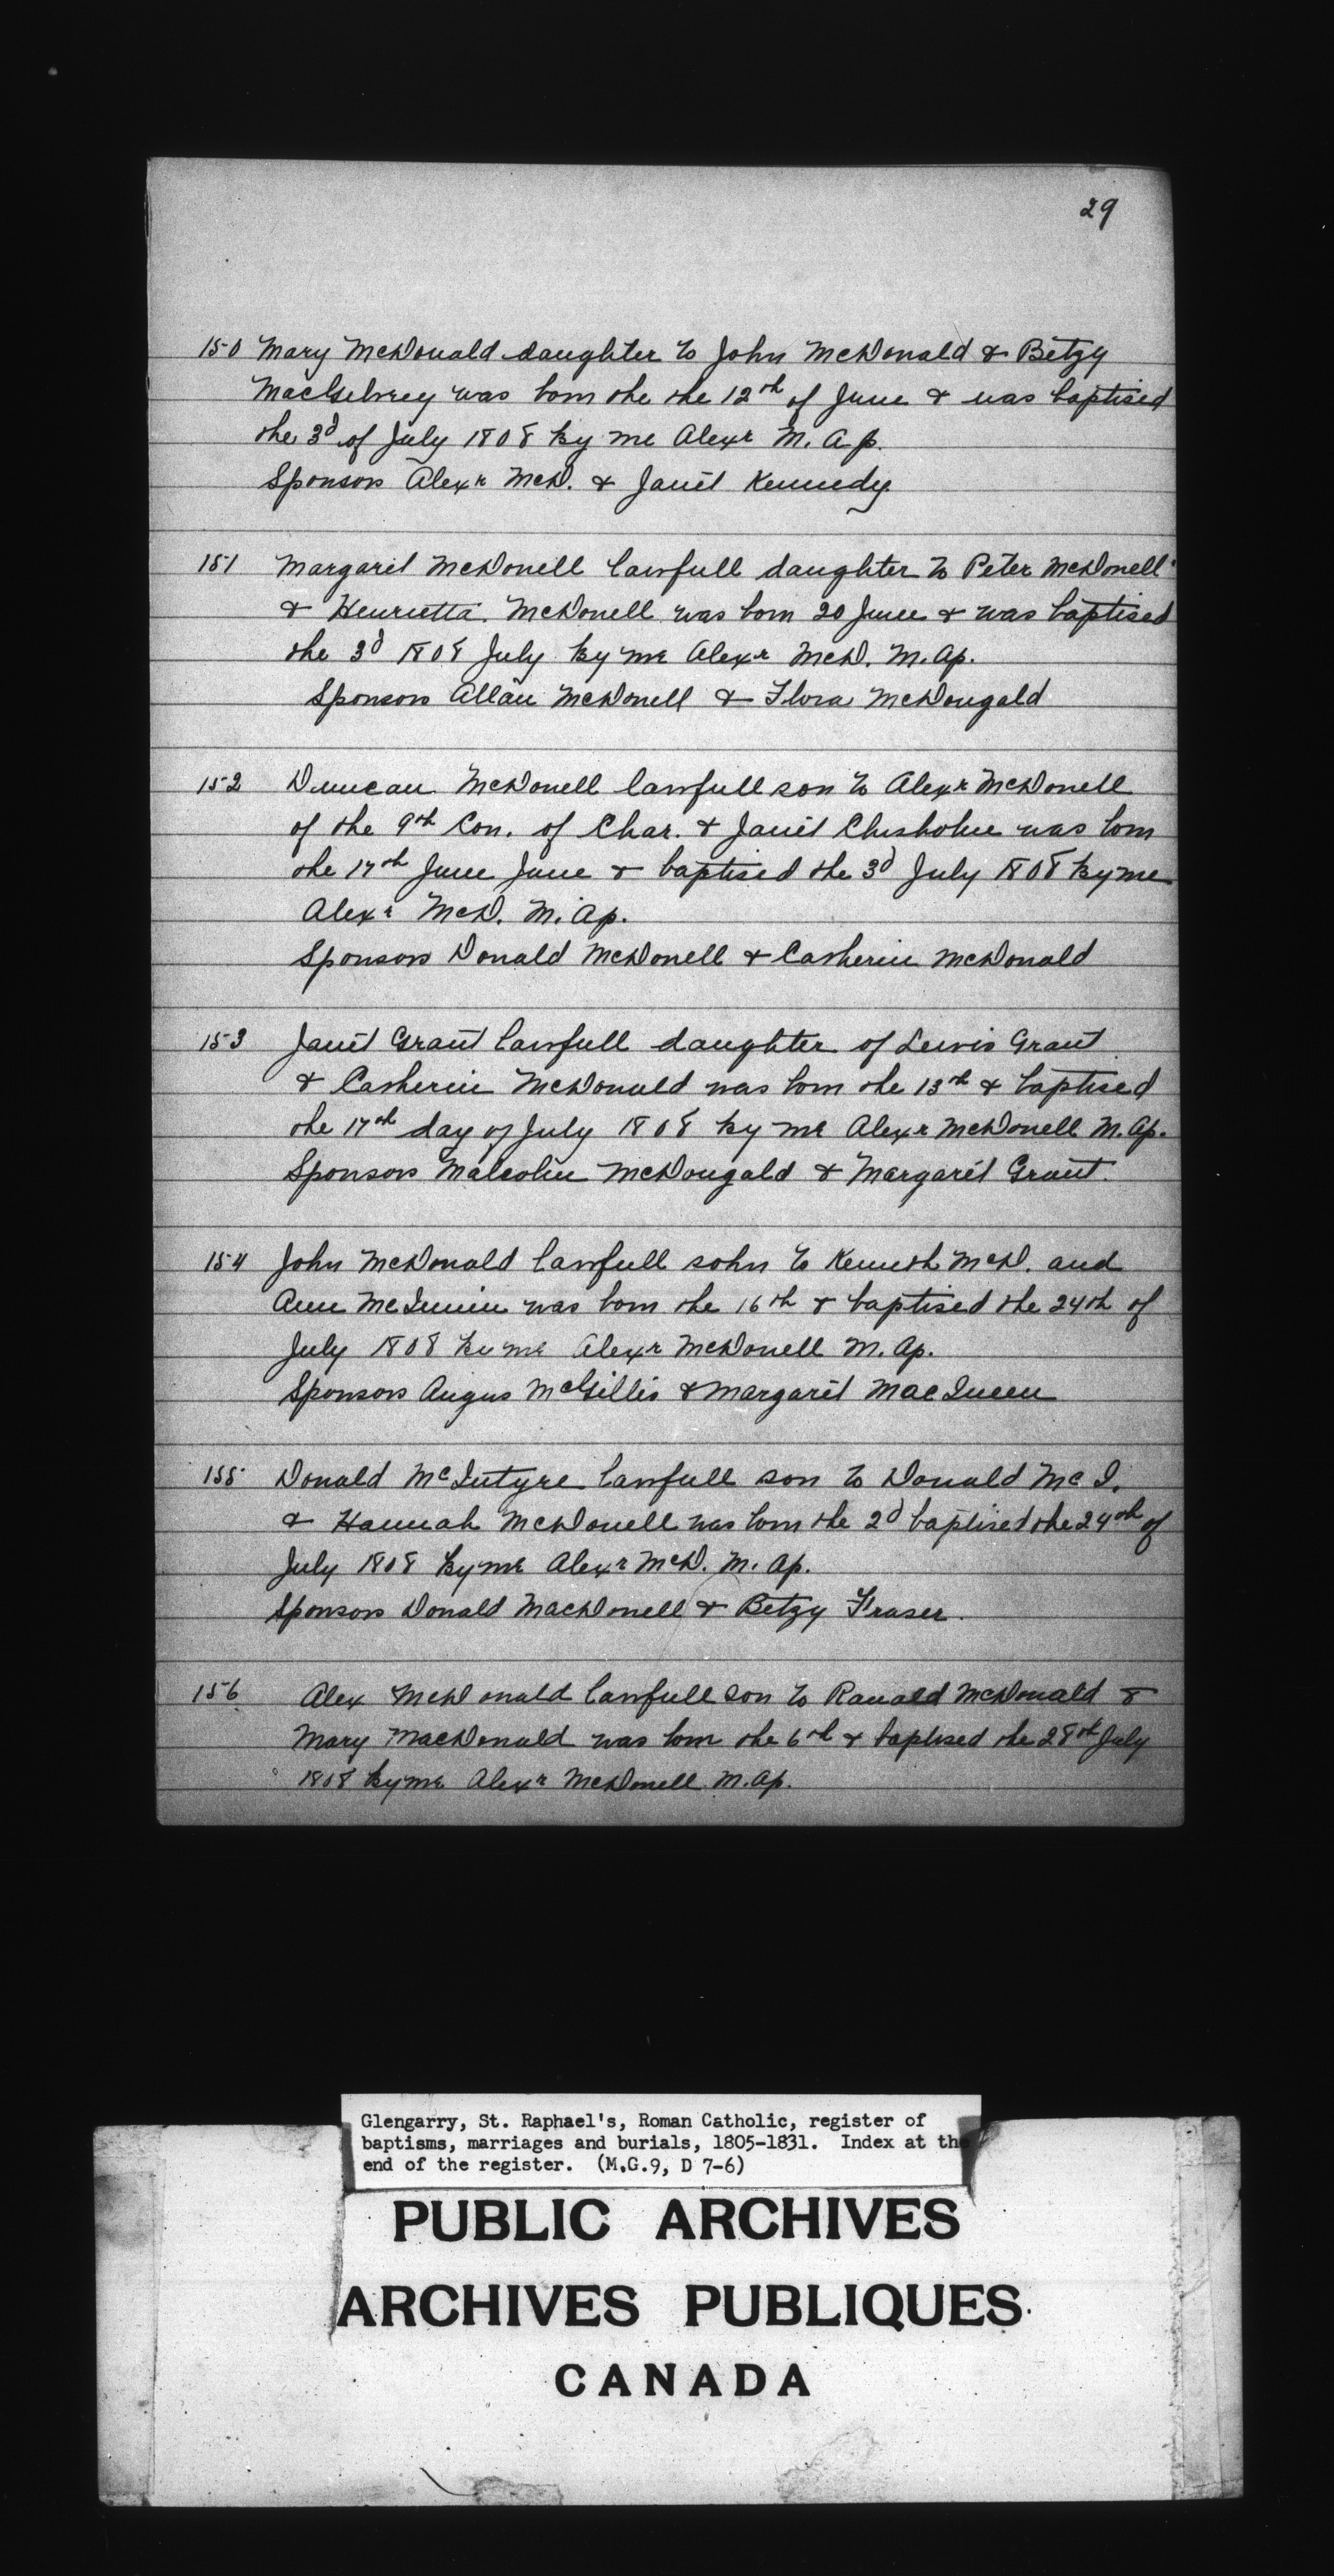 29
150 Mary McDonald daughter to John McDonald & Betzy
MacGelvrey was born the the 12th of June & was baptised
the 3d of July 1808 by me Alexr M. Ap.
Sponsors Alexr McD. & Janet Kennedy
151 Margaret McDonell lawfull daughter to Peter McDonell
& Henrietta McDonell was born 20 June & was baptised
the 3d 1808 July by me Alexr McD. M. Ap.
Sponsors Allan McDonell & Flora McDougald
152 Duncan McDonell lawfull son to Alexr McDonell
of the 9th Con. of Char. & Janet Chisholm was born
the 17th June June & baptised the 3d July 1808 by me
Alexr McD. M. Ap.
Sponsors Donald McDonell & Catherin McDonald
153 Janet Grant lawfull daughter of Lewis Grant
& Catherin McDonald was born the 13th & baptised
the 17th day of July 1808 by me Alexr McDonell M. Ap.
Sponsors Malcolm McDougald & Margaret Grant.
154 John McDonald lawfull sohn to Kenneth McD. and
Ann McQuinn was born the 16th & baptised the 24th of
July 1808 by me Alexr McDonell M. Ap.
Sponsors Angus McGillis & Margaret MacQueen
155 Donald McIntyre lawfull son to Donald Mc I.
& Hannah McDonell was born the 2d baptised the 24th of
July 1808 by me Alexr McD. M. Ap.
Sponsors Donald MacDonell & Betzy Fraser.
156 Alex McDonald lawfull son to Ranald McDonald &
Mary MacDonald was born the 6th & baptised the 28th July
1808 by me Alexr McDonell M. Ap.
Glengarry, St. Raphael's, Roman Catholic, register of
baptisms, marriages and burials, 1805-1831. Index at the
end of the register. (M.G.9, D 7-6)
PUBLIC ARCHIVES
ARCHIVES PUBLIQUES
CANADA